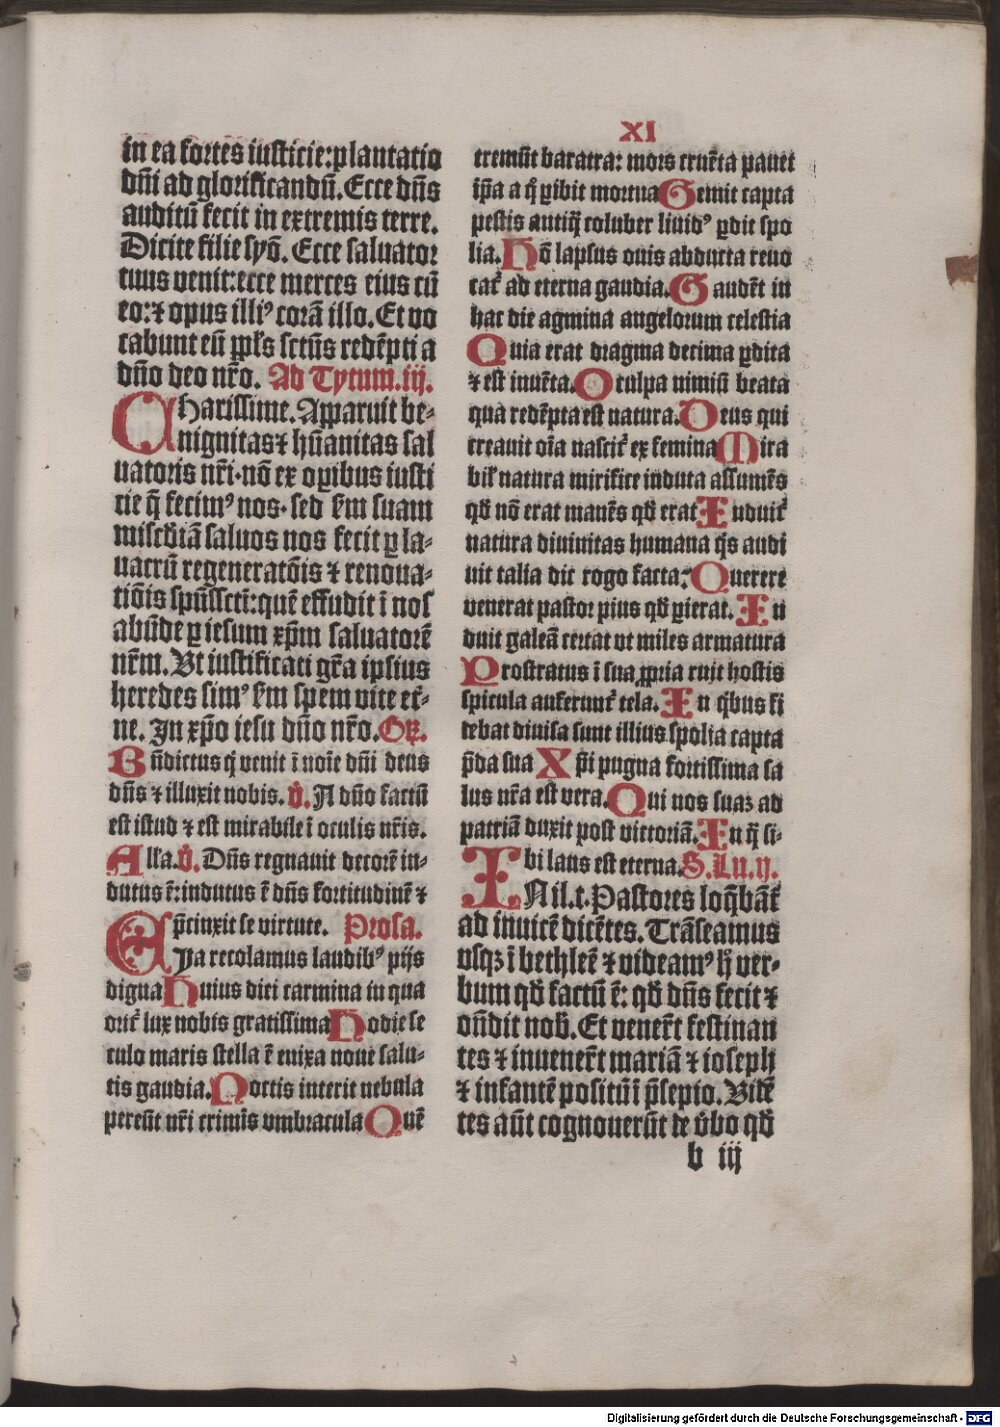 XI
in ea fortes iusticie:plantatio
dñi ad glorificandũ.Ecce dñs
auditũ fecit in extremis terre.
Dicite filie syõ. Ecce saluator
tuus venit:ecce merces eius cũ
eo:⁊ opus illiꝰ corã illo. Et vo
cabunt eũ ꝓpl̃s sctũs redẽpti a
dño deo nr̃o. Ad Tytum.iij.
CHarissime. Apparuit be-
nignitas ⁊ hũanitas sal
uatoris nr̃i.nõ ex oꝑibus iusti
cie q̃ fecimꝰ nos. sed ẜm suam
mis̃cdiã saluos nos fecit ꝑ la-
uacrũ regeneratõis ⁊ renoua-
tiõis spũssctĩ:quẽ effudit ĩ nos
abũde ꝑ iesum xp̃m saluatorẽ
nr̃m. Vt iustificati gr̃a ipsius
heredes simꝰ ẜm spem vite et̃-
ne. In xp̃o iesu dño nr̃o. Gr̃.
Bñdictus q̇ venit ĩ noĩe dñi deus
dñs ⁊ illuxit nobis. V̓. A dño factũ
est istud ⁊ est mirabile ĩ oculis nr̃is.
Alla. V̓. Dñs regnauit decorẽ in-
dutus ẽ:indutus ẽ dñs fortitudinẽ ⁊
p̃cinxit se virtute. Prosa.
EYa recolamus laudibꝰ pijs
digna Huius diei carmina in qua
orit̃ lux nobis gratissima Hodie se
culo maris stella ẽ enixa noue salu-
tis gaudia. Noctis interit nebula
pereũt nr̃i crimĩs vmbracula Quẽ
tremũt baratra: mors cruẽta pauet
ip̃a a q̊ ꝑibit mortua Gemit capta
pestis antiq̃ coluber liuidꝰ ꝑdit spo
lia. Hõ lapsus ouis abducta reuo
cat̃ ad eterna gaudia. Gaudẽt in
hac die agmina angelorum celestia
Quia erat dragma decima ꝑdita
⁊ est inuẽta. O culpa nimiũ beata
qua redẽpta est natura. Deus qui
creauit oĩa nascit̃ ex femina Mira
bil̃ natura mirifice induta assumẽs
qd̃ nõ erat manẽs qd̃ erat Induit̃
natura diuinitas humana q̇s audi
uit talia dic rogo facta: Querere
venerat pastor pius qd̃ ꝑierat. In
duit galeã certat vt miles armatura
Prostratus ĩ sua ꝓpria ruit hostis
spicula auferunt̃ tela. In q̇bus fi
debat diuisa sunt illius spolia capta
p̃da sua Xp̃i pugna fortissima sa
lus nr̃a est vera. Qui nos suaꝫ ad
patriã duxit post victoriã. In q̃ si-
bi laus est eterna. S. Lu.ij.
INil.t. Pastores loq̃bãt̃
ad inuicẽ dicẽtes. Trãseamus
vsqꝫ ĩ bethleẽ ⁊ videamꝰ h̃ ver-
bum qd̃ factũ ẽ: qd̃ dñs fecit ⁊
oñdit nob̃. Et venerũt festinan
tes ⁊ inuenerũt mariã ⁊ ioseph
⁊ infantẽ positũ ĩ p̃sepio. Vidẽ
tes aũt cognouerũt de v̓bo qd̃
b iij
Digitalisierung gefördert durch die Deutsche Forschungsgemeinschaft - DFG